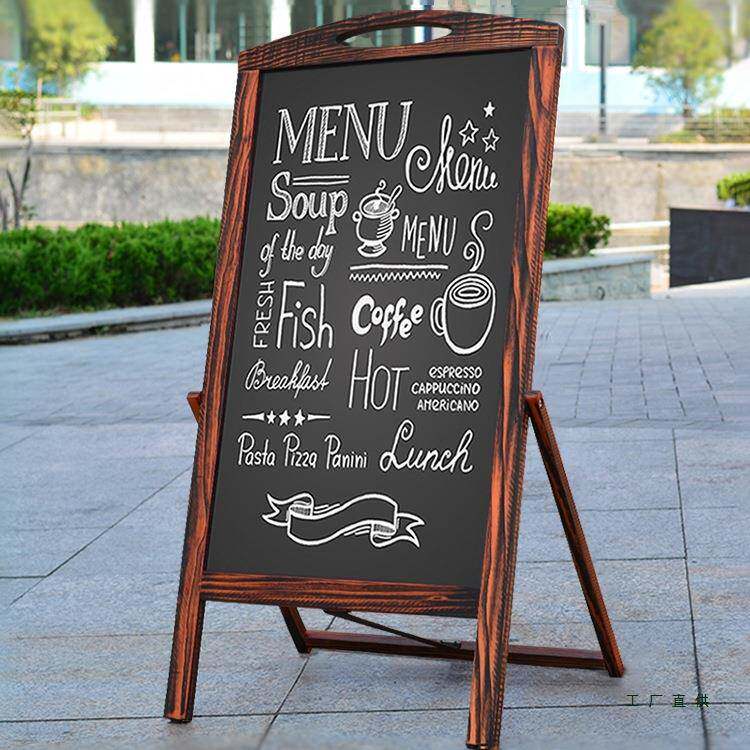 MENU
Menu
Soup
of the day
MENU
FRESH
Fish
Coffee
Breakfast
HOT
ESPRESSO
CAPPUCCINO
AMERICANO
Pasta Pizza Panini
Lunch
工厂直供